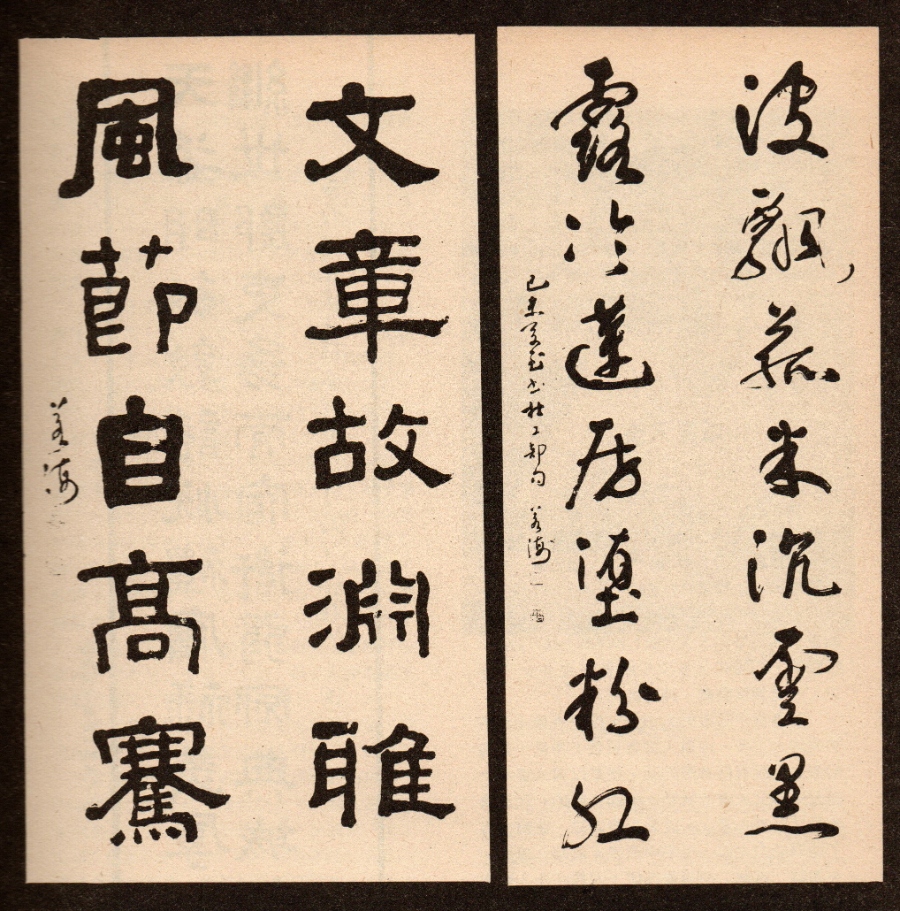 波飄菰米沉雲黑
露冷蓮房墮粉紅
己未冬至書杜工部句 若海
文章故淵雅
風節自高騫
若海